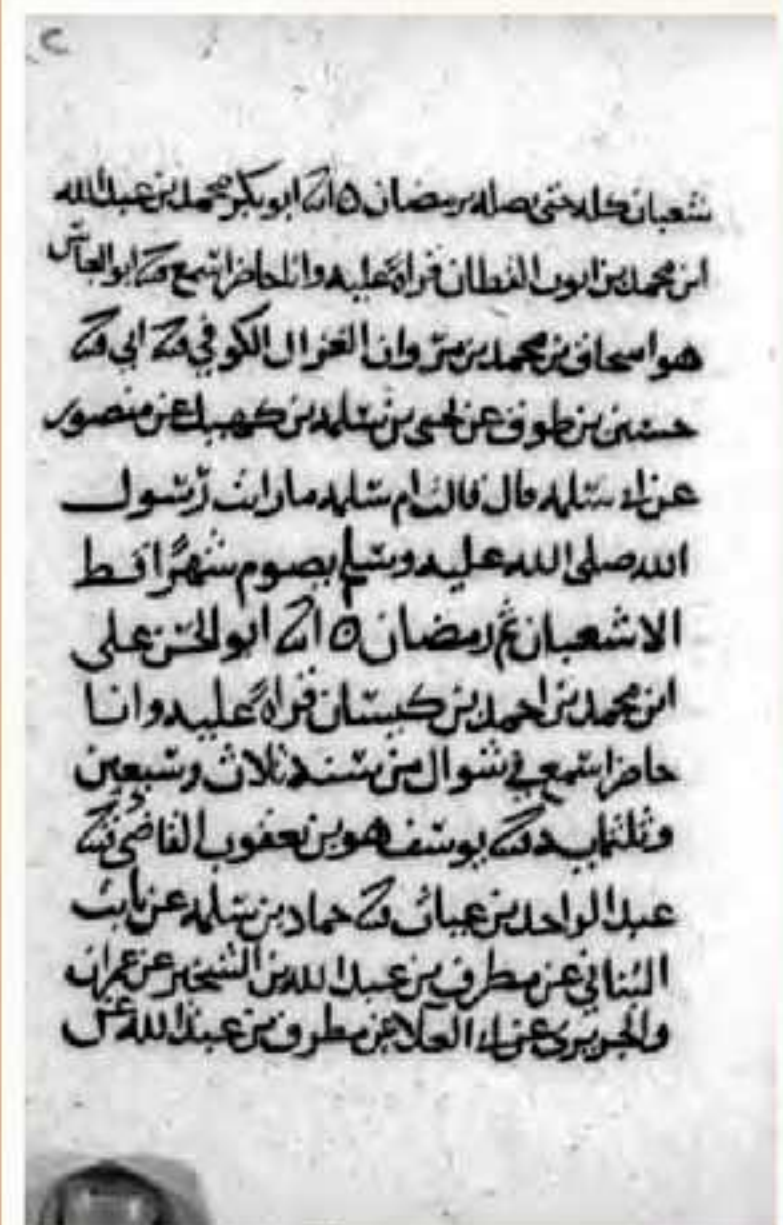 ٢
شعبان كله حتى يصله برمضان ٥ أنا أبو بكر محمد بن عبد الله
ابن محمد بن ايوب القطان قراة عليه وانا حاضر اسمع ثنا ابو العباس
هو اسحاق بن محمد بن مروان الغزال الكوفي ثنا ابي ثنا
حسين بن عن يحيى بن سلمه بن كهيل عن منصور
عن ابي سلمه قال قالت ام سلمه ما رايت رسول
الله صلى الله عليه وسلم يصوم شهرا قط
الا شعبان ثم رمضان ٥ أنا ابو الحسن علي
ابن محمد بن احمد بن كيسان قراة عليه وانا
حاضر اسمع في شوال من سنة ثلاث وسبعين
وثلثمايه ثنا يوسف هو بن يعقوب القاضي ثنا
عبد الواحد بن غياث ثنا حماد بن سلمه عن ثابت
البناني عن مطرف بن عبد الله بن الشخير عن عمران
والجريري عن ابي العلا عن مطرف بن عبد الله عن